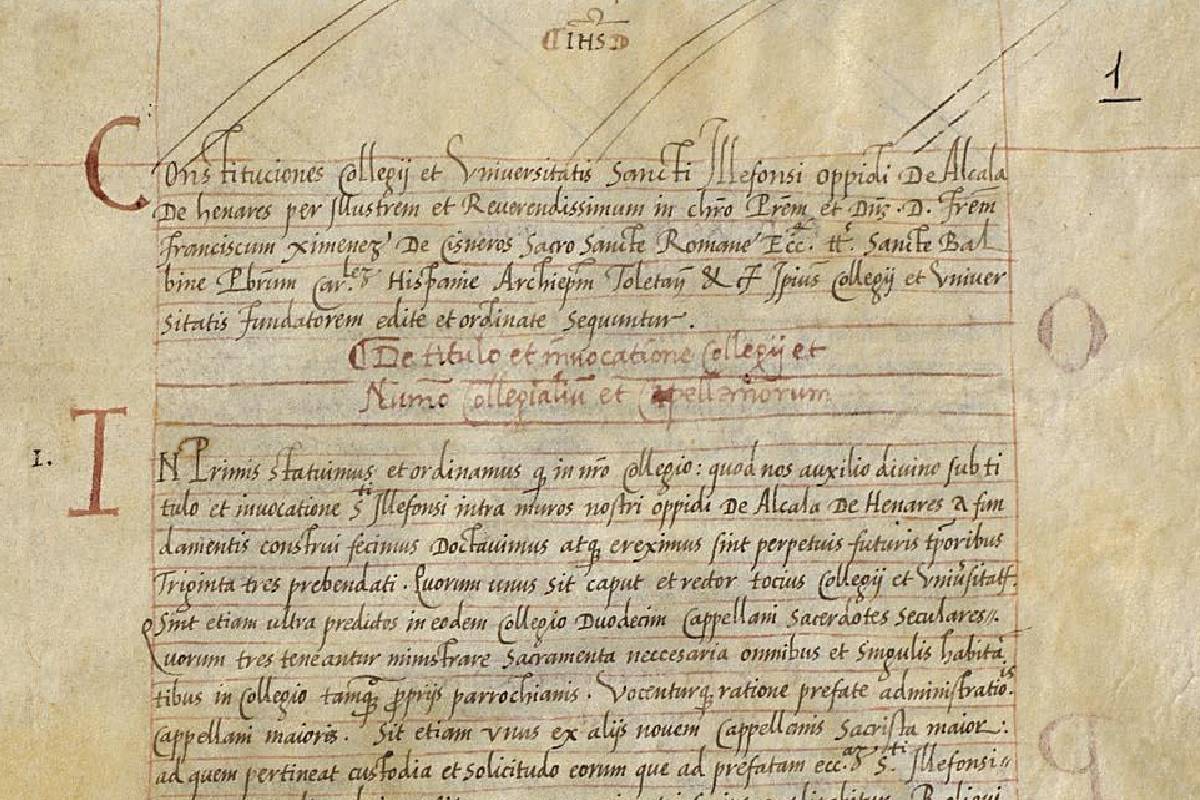 IHS
1
Constituciones Collegij et Vniuersitatis Sancti Illefonsi oppidi De Alcala
De henares per Jllustrem et Reuerendissimum in chro Prem et Dnz. D. Frem
franciscum ximenez De Cisneros Sacro Sancte Romane Ecc. tt. Sancte Bal
bine Pbrum Car.lez Hispanie Archiepm Toletan & Ipius Collegij et Vniuer
sitatis fundatorem edite et ordinate Sequuntur.
De titulo et inuocatione Collegij et
Numo Collegialiu et Capellanorum
1. IN Primis statuimus et ordinamus q in nro Collegio: quod nos auxilio diuino sub ti
tulo et inuocatione sti Jllefonsi intra muros nostri oppidi De Alcala De Henares a fun
damentis construi fecimus Doctauimus atq ereximus sint perpetuis futuris tporibus
Triginta tres prebendati. Quorum unus sit caput et rector tocius Collegij et Vniusitatt.
Sint etiam ultra predictos in eodem Collegio Duodecim Cappellani Sacerdotes Seculares
Quorum tres teneantur ministrare Sacramenta neccesaria omnibus et singulis habita
tibus in Collegio tamq pprijs parrochianis. Vocenturq ratione prefate administratiois.
Cappellani maioris. Sit etiam vnus ex alijs nouem Cappellanis Sacrista maior:
ad quem pertineat custodia et Solicitudo eorum que ad prefatam ecc. Sti Jllefonsi